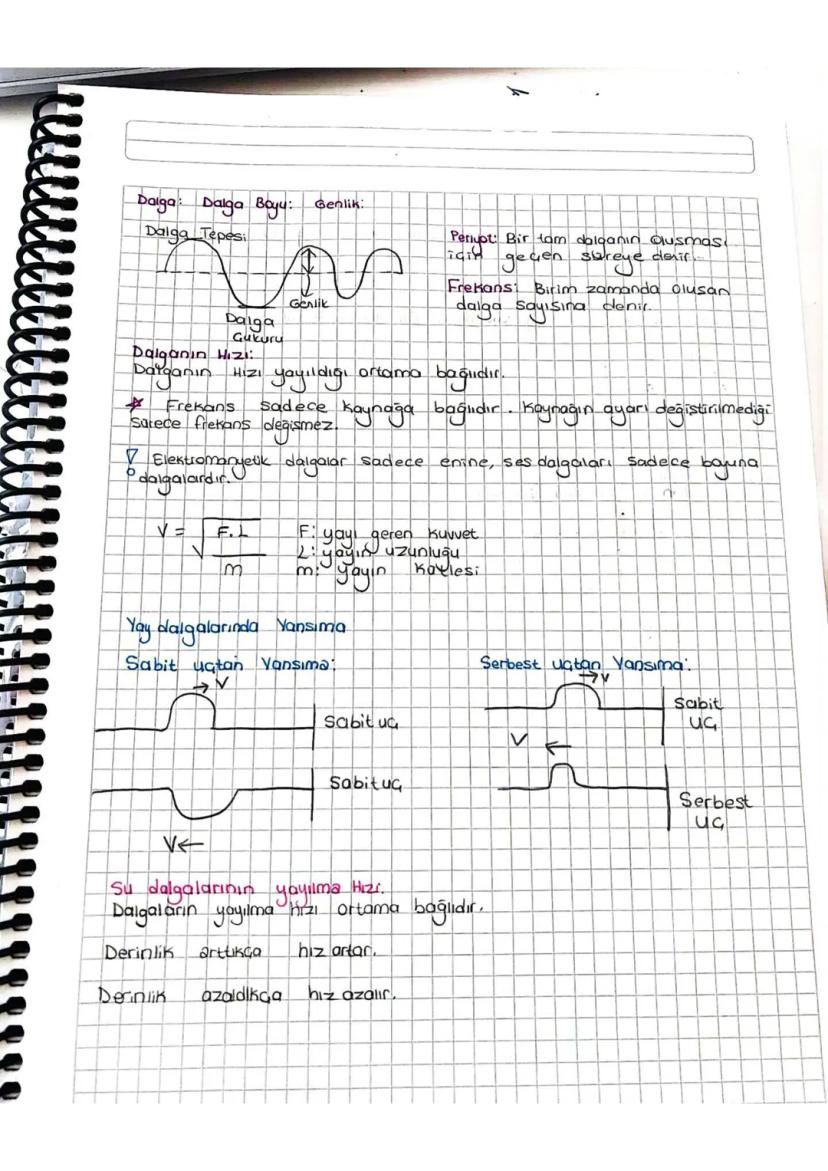 Dalga: Dalga Boyu: Genlik:
Dalga Tepesi
Genlik
Dalga
Çukuru
Periyot: Bir tam dalganın oluşması
için geçen süreye denir.
Frekans: Birim zamanda oluşan
dalga sayısına denir.
Dalganın Hızı:
Dalganın Hızı yayıldığı ortama bağlıdır.
* Frekans sadece kaynağa bağlıdır. Kaynağın ayarı değiştirilmediği
sürece frekans değişmez.
! Elektromanyetik dalgalar sadece enine, ses dalgaları sadece boyuna
dalgalardır.
V = √ F.L / m
F: yayı geren kuvvet
L: yayın uzunluğu
m: yayın kütlesi
Yay dalgalarında Yansıma
Sabit uçtan Yansıma:
→ V
Sabit uç
Sabit uç
V ←
Serbest uçtan Yansıma:
→ V
Sabit
uç
V ←
Serbest
uç
Su dalgalarının yayılma Hızı.
Dalgaların yayılma hızı ortama bağlıdır.
Derinlik arttıkça hız artar.
Derinlik azaldıkça hız azalır.